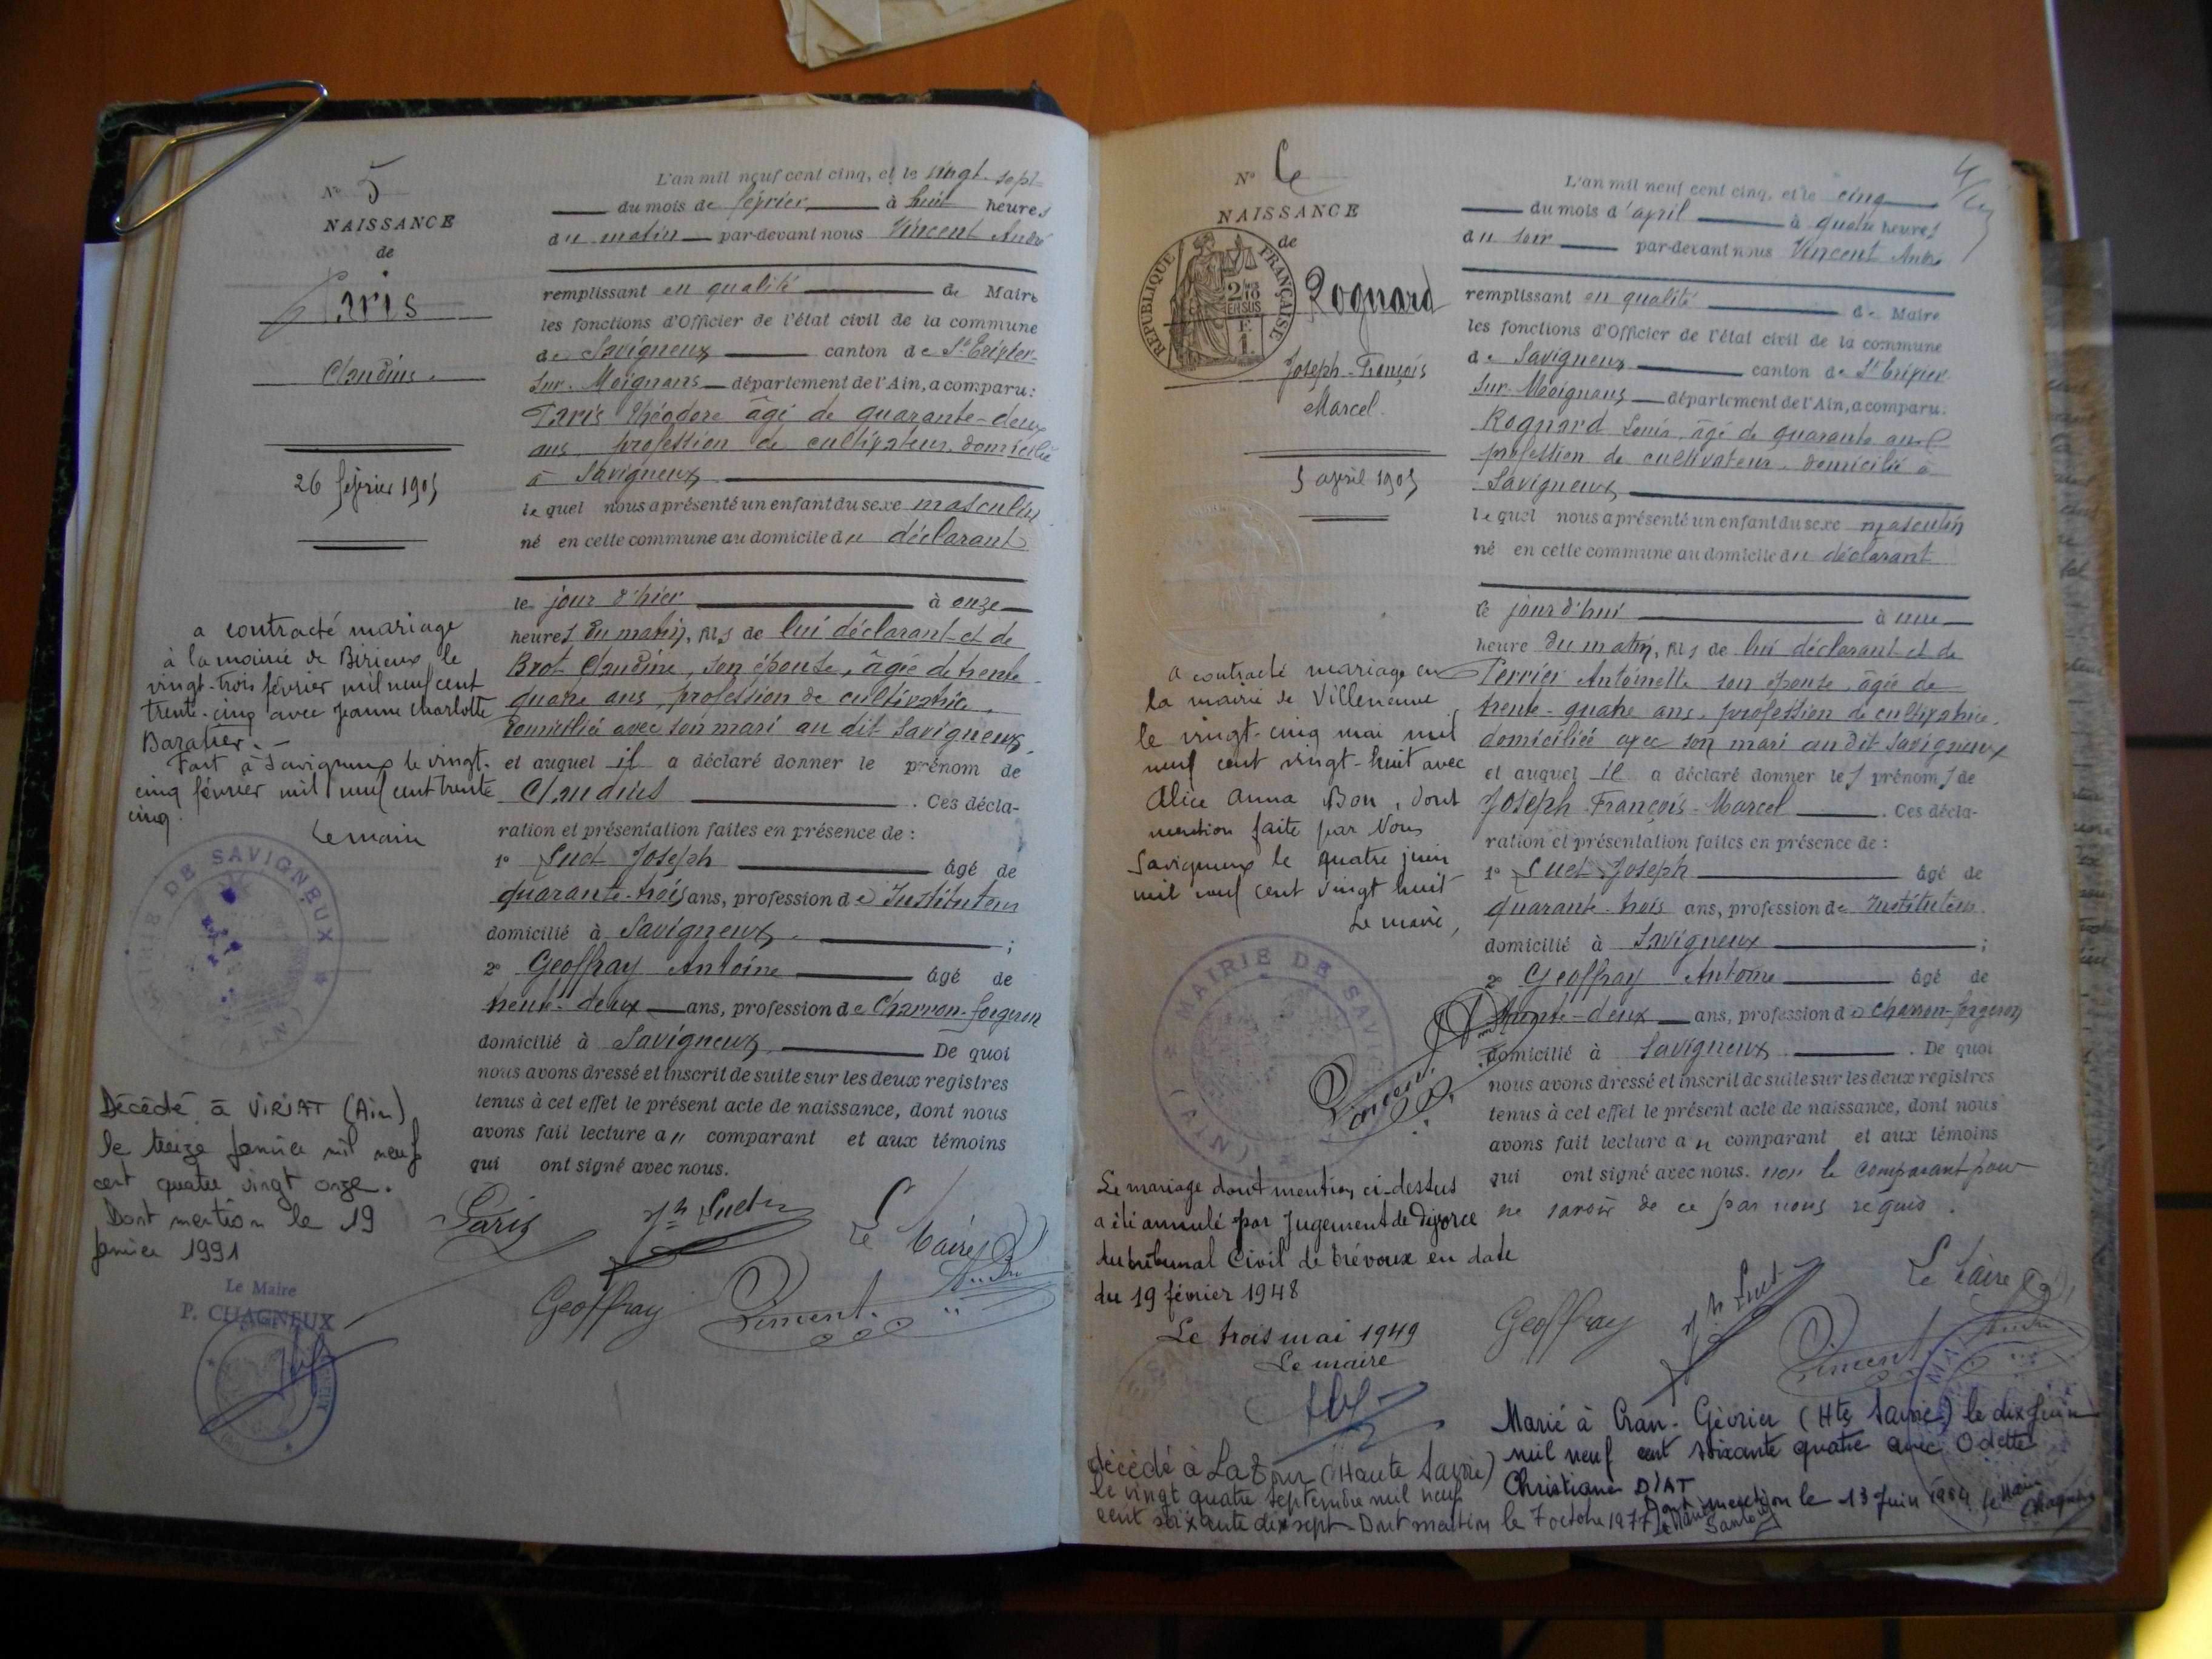 N° 5
NAISSANCE
de
Paris
Claudius.
26 février 1905
a contracté mariage
à la mairie de Birieux, le
vingt-trois février mil neuf cent
trente-cinq avec Jeanne Charlotte
Baratier. -
Fait à Savigneux le vingt-
cinq février mil neuf cent trente
cinq.
Le maire
MAIRIE DE SAVIGNEUX
(AIN)
Décédé à VIRIAT (Ain)
le treize janvier mil neuf
cent quatre vingt onze.
Dont mention le 19
janvier 1991
Le Maire
P. CHAGNEUX
L'an mil neuf cent cinq, et le vingt-sept
du mois de février à huit heures
du matin par-devant nous Vincent André
remplissant en qualité de Maire
les fonctions d'Officier de l'état civil de la commune
de Savigneux canton de St Trivier-
sur-Moignans département de l'Ain, a comparu:
Paris Théodore âgé de quarante-deux
ans profession de cultivateur, domicilié
à Savigneux
lequel nous a présenté un enfant du sexe masculin
né en cette commune au domicile du déclarant
le jour d'hier à onze
heures du matin, fils de lui déclarant et de
Brot Claudine, son épouse, âgée de trente-
quatre ans, profession de cultivatrice,
domiciliée avec son mari au dit Savigneux,
et auquel il a déclaré donner le prénom de
Claudius . Ces décla-
ration et présentation faites en présence de :
1° Suet Joseph âgé de
quarante-trois ans, profession de Instituteur
domicilié à Savigneux. ;
2° Geoffray Antoine âgé de
trente-deux ans, profession de Charron-forgeron
domicilié à Savigneux, De quoi
nous avons dressé et inscrit de suite sur les deux registres
tenus à cet effet le présent acte de naissance, dont nous
avons fait lecture au comparant et aux témoins
qui ont signé avec nous.
Paris Jh Suet Le Maire
Geoffray Vincent André
N° 6
NAISSANCE
de
RÉPUBLIQUE FRANÇAISE
2/10 EN SUS
F.
1
Rognard
Joseph-François
Marcel.
5 avril 1905
a contracté mariage en
la mairie de Villeneuve,
le vingt-cinq mai mil
neuf cent vingt-huit avec
Alice Anna Bon, dont
mention faite par Nous
Savigneux le quatre juin
mil neuf cent vingt huit
Le maire,
MAIRIE DE SAVIGNEUX
(AIN)
Le mariage dont mention ci-dessus
a été annulé par Jugement de Divorce
du tribunal Civil de Trévoux en date
du 19 février 1948
Le trois mai 1949
Le maire
décédé à La Tour (Haute Savoie)
le vingt quatre septembre mil neuf
cent soixante dix sept - Dont mention le 7 octobre 1977
L'an mil neuf cent cinq, et le cinq
du mois d'avril à quatre heures
du soir par-devant nous Vincent André
remplissant en qualité de Maire
les fonctions d'Officier de l'état civil de la commune
de Savigneux canton de St Trivier-
sur-Moignans département de l'Ain, a comparu:
Rognard Louis, âgé de quarante ans
profession de cultivateur, domicilié à
Savigneux
lequel nous a présenté un enfant du sexe masculin
né en cette commune au domicile du déclarant
le jour d'hui à une
heure du matin, fils de lui déclarant et de
Perrier Antoinette son épouse, âgée de
trente-quatre ans, profession de cultivatrice,
domiciliée avec son mari au dit Savigneux
et auquel il a déclaré donner les prénoms de
Joseph-François-Marcel . Ces décla-
ration et présentation faites en présence de :
1° Suet Joseph âgé de
quarante-trois ans, profession de Instituteur.
domicilié à Savigneux ;
2° Geoffray Antoine âgé de
trente-deux ans, profession de Charron-forgeron
domicilié à Savigneux . De quoi
nous avons dressé et inscrit de suite sur les deux registres
tenus à cet effet le présent acte de naissance, dont nous
avons fait lecture au comparant et aux témoins
qui ont signé avec nous. non le comparant pour
ne savoir de ce par nous requis.
Geoffray Jh Suet Le Maire
Vincent André
Marié à Cran-Gévrier (Hte Savoie) le dix juin
mil neuf cent soixante quatre avec Odette
Christiane DIAT
Dont mention le 13 Juin 1964 le Maire